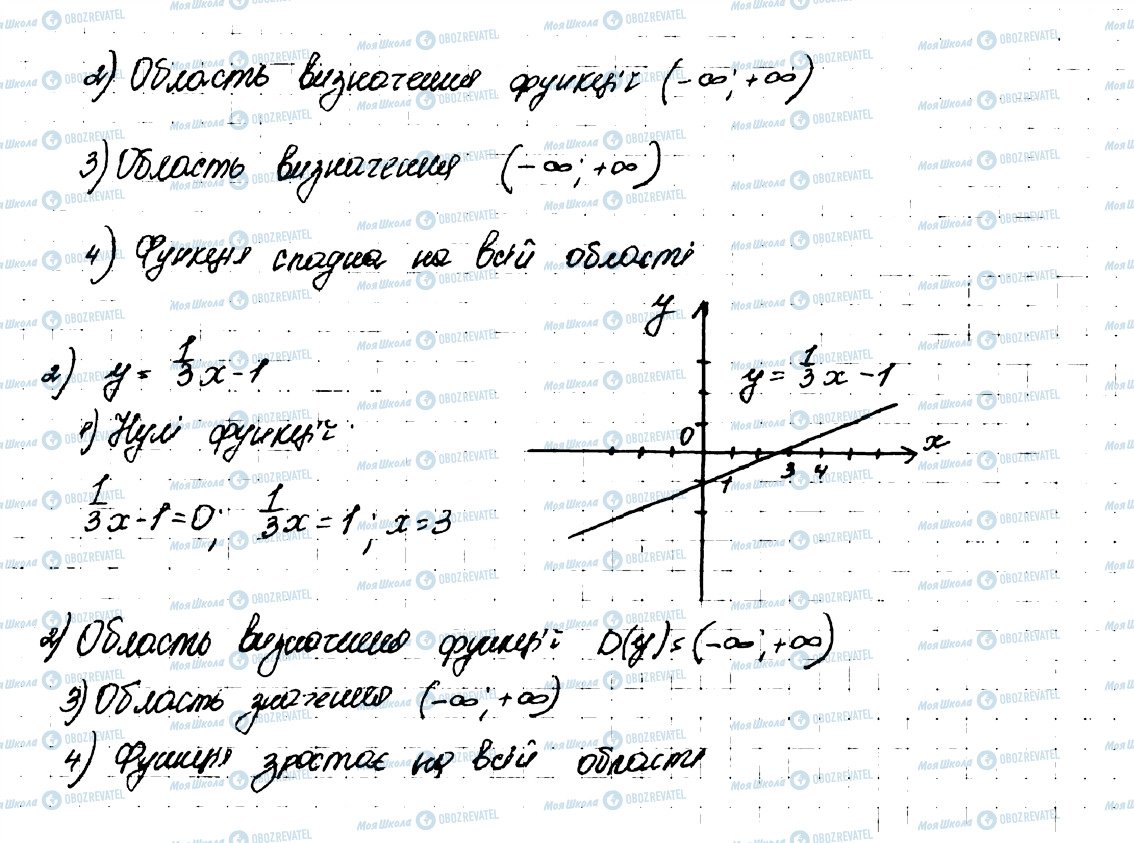 2) Область визначення функції (-∞; +∞)
3) Область визначення (-∞; +∞)
4) Функція спадна на всій області
2) y = 1/3 x - 1
1) Нулі функції
1/3 x - 1 = 0; 1/3 x = 1; x = 3
y
y = 1/3 x - 1
0
x
3 4
-1
2) Область визначення функції D(y) = (-∞; +∞)
3) Область значення (-∞; +∞)
4) Функція зростає на всій області
МояШкола OBOZREVATEL